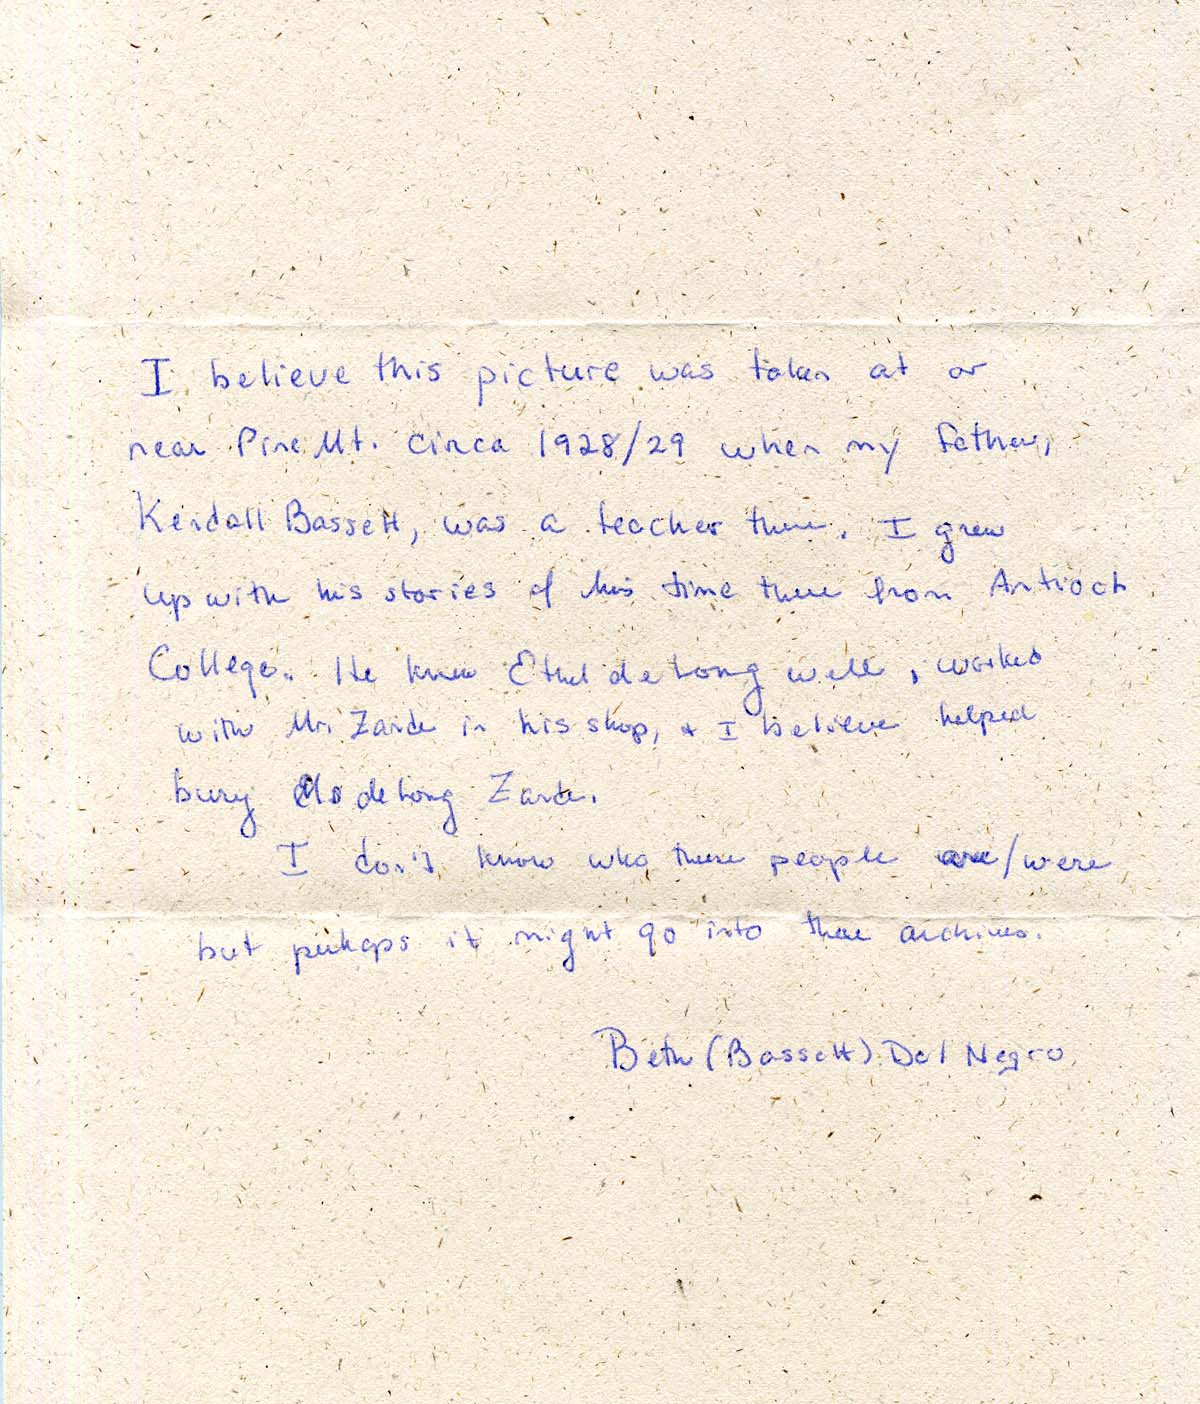 I believe this picture was taken at or
near Pine Mt. circa 1928/29 when my father,
Kendall Bassett, was a teacher there. I grew
up with his stories of his time there from Antioch
College. He knew Ethel deLong well, worked
with Mr. Zande in his shop, & I believe helped
bury deLong Zande.
I don't know who these people are/were
but perhaps it might go into the archives.
Beth (Bassett) Del Negro